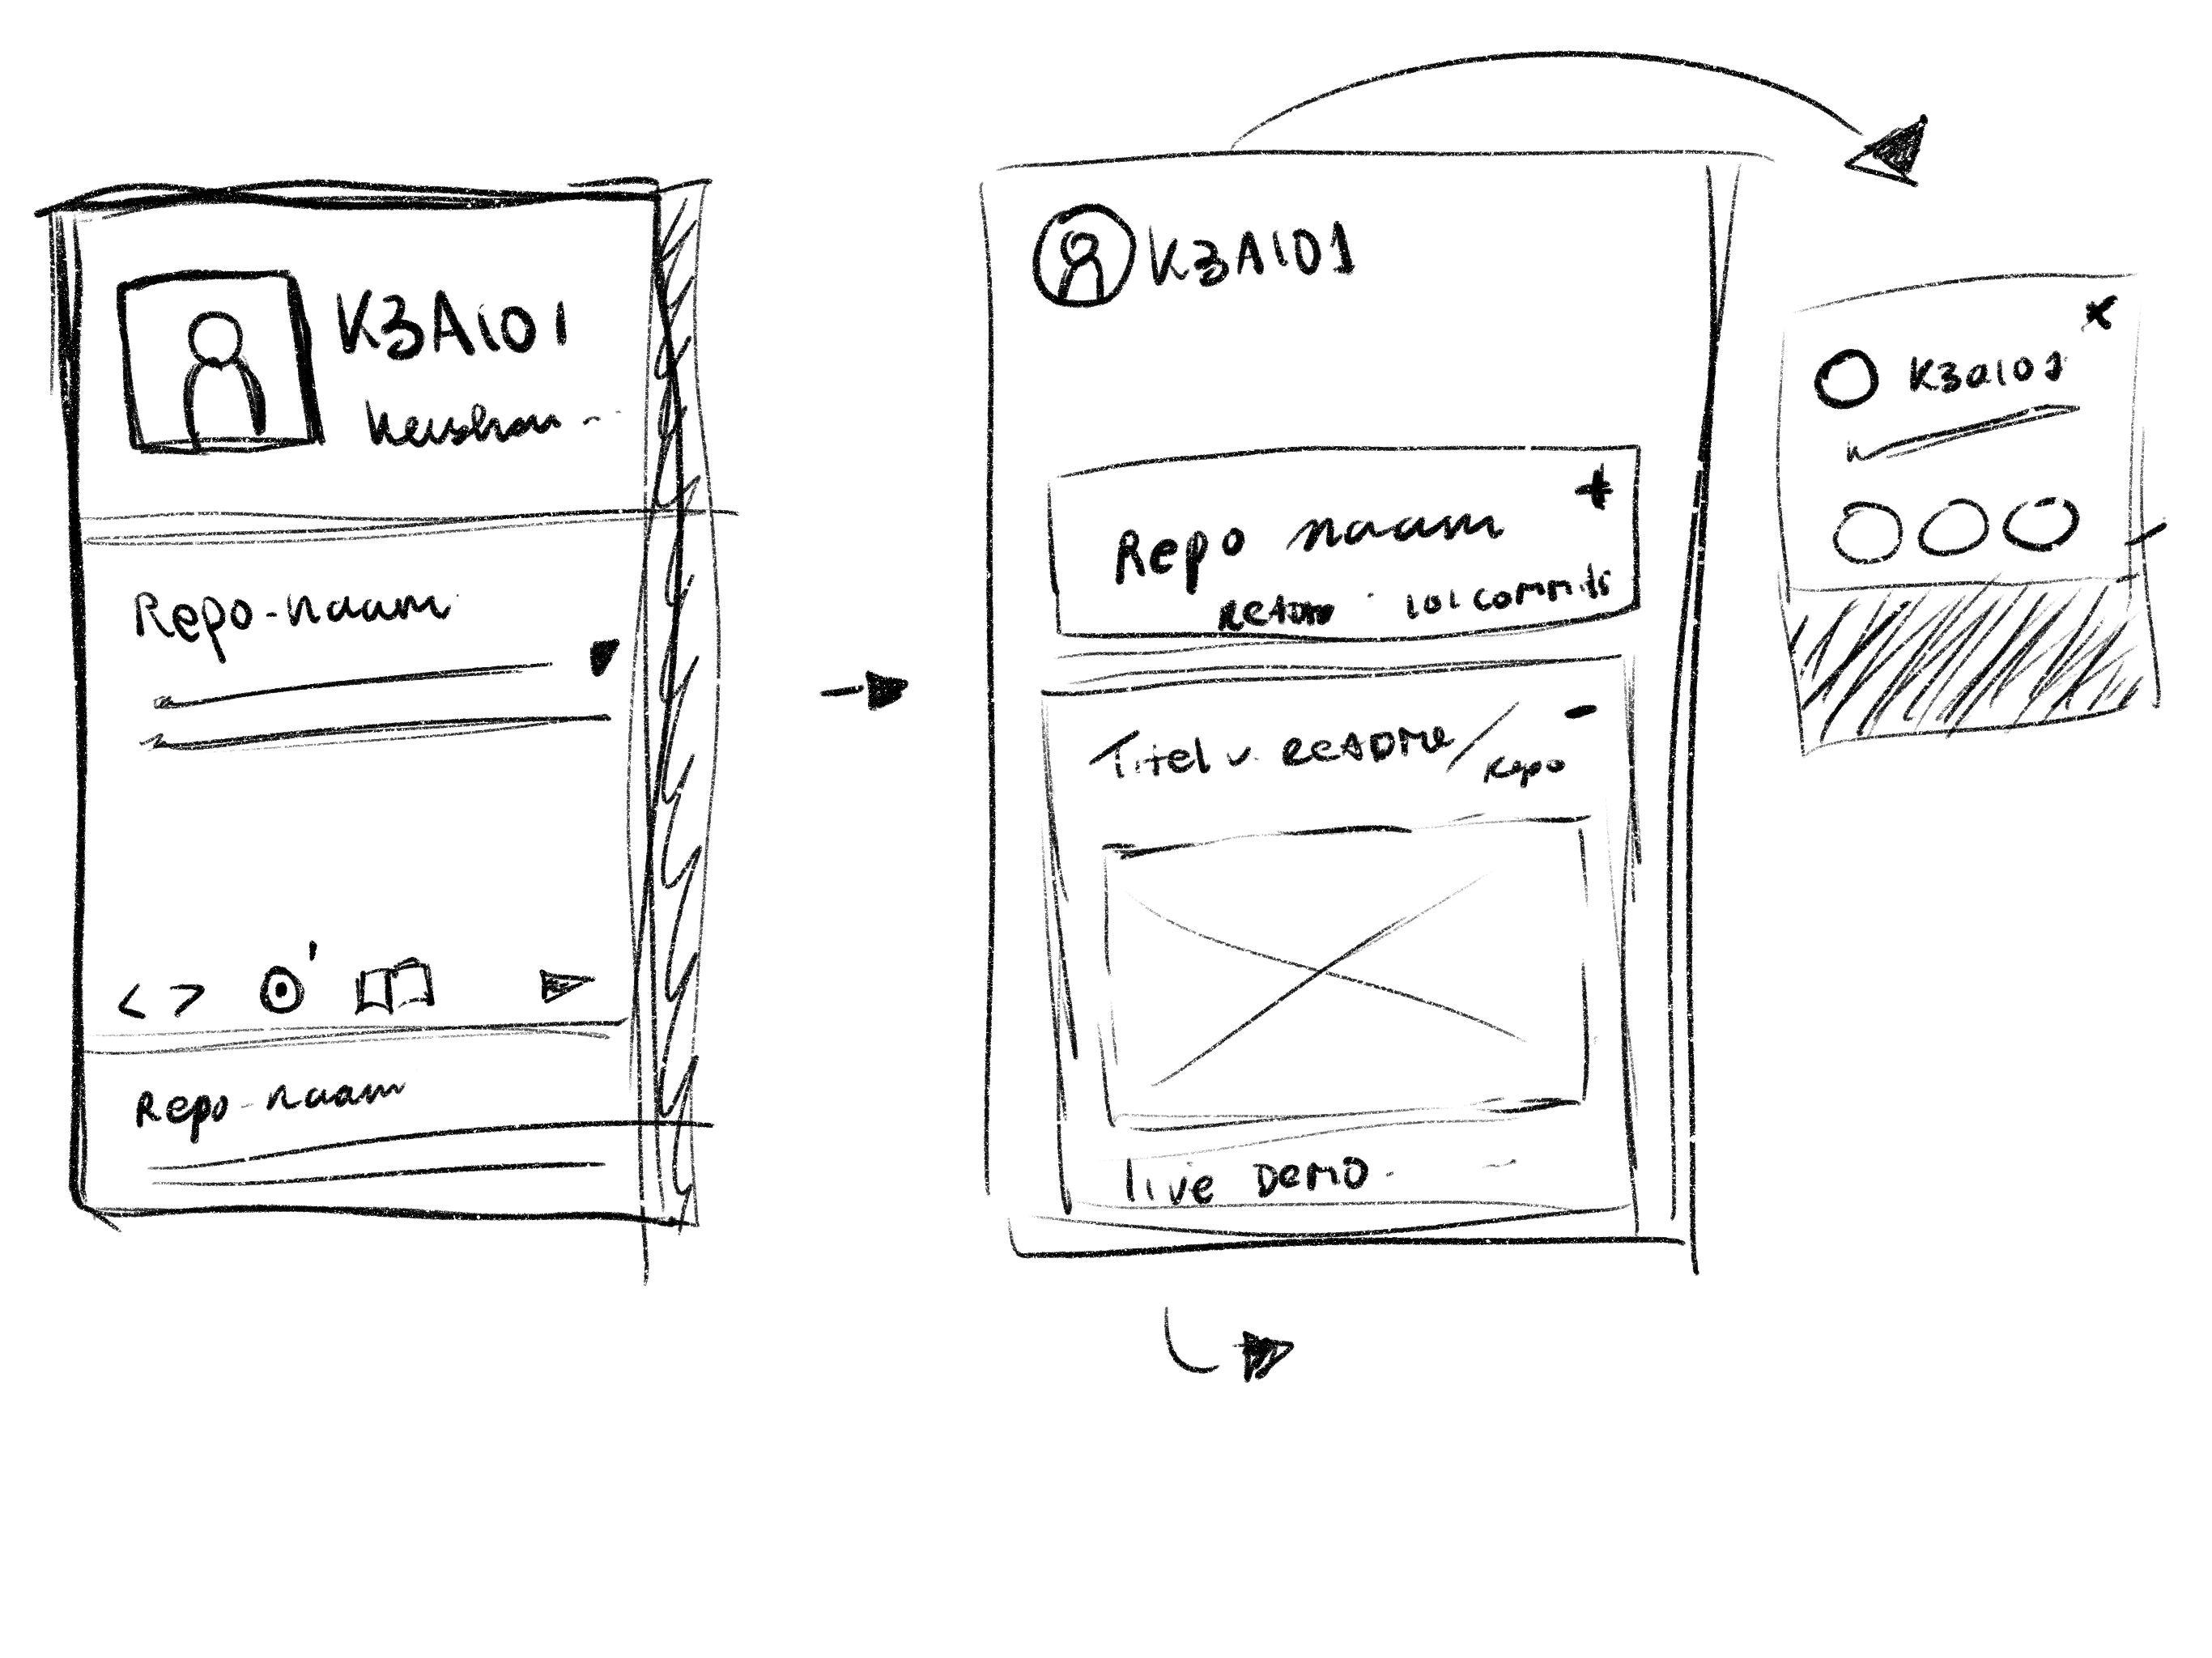 K3A101
Repo-naam
< >
Repo-naam
K3A101
Repo naam
+
README 101 commits
Titel v. README / Repo
-
live DEMO
x
K3a101